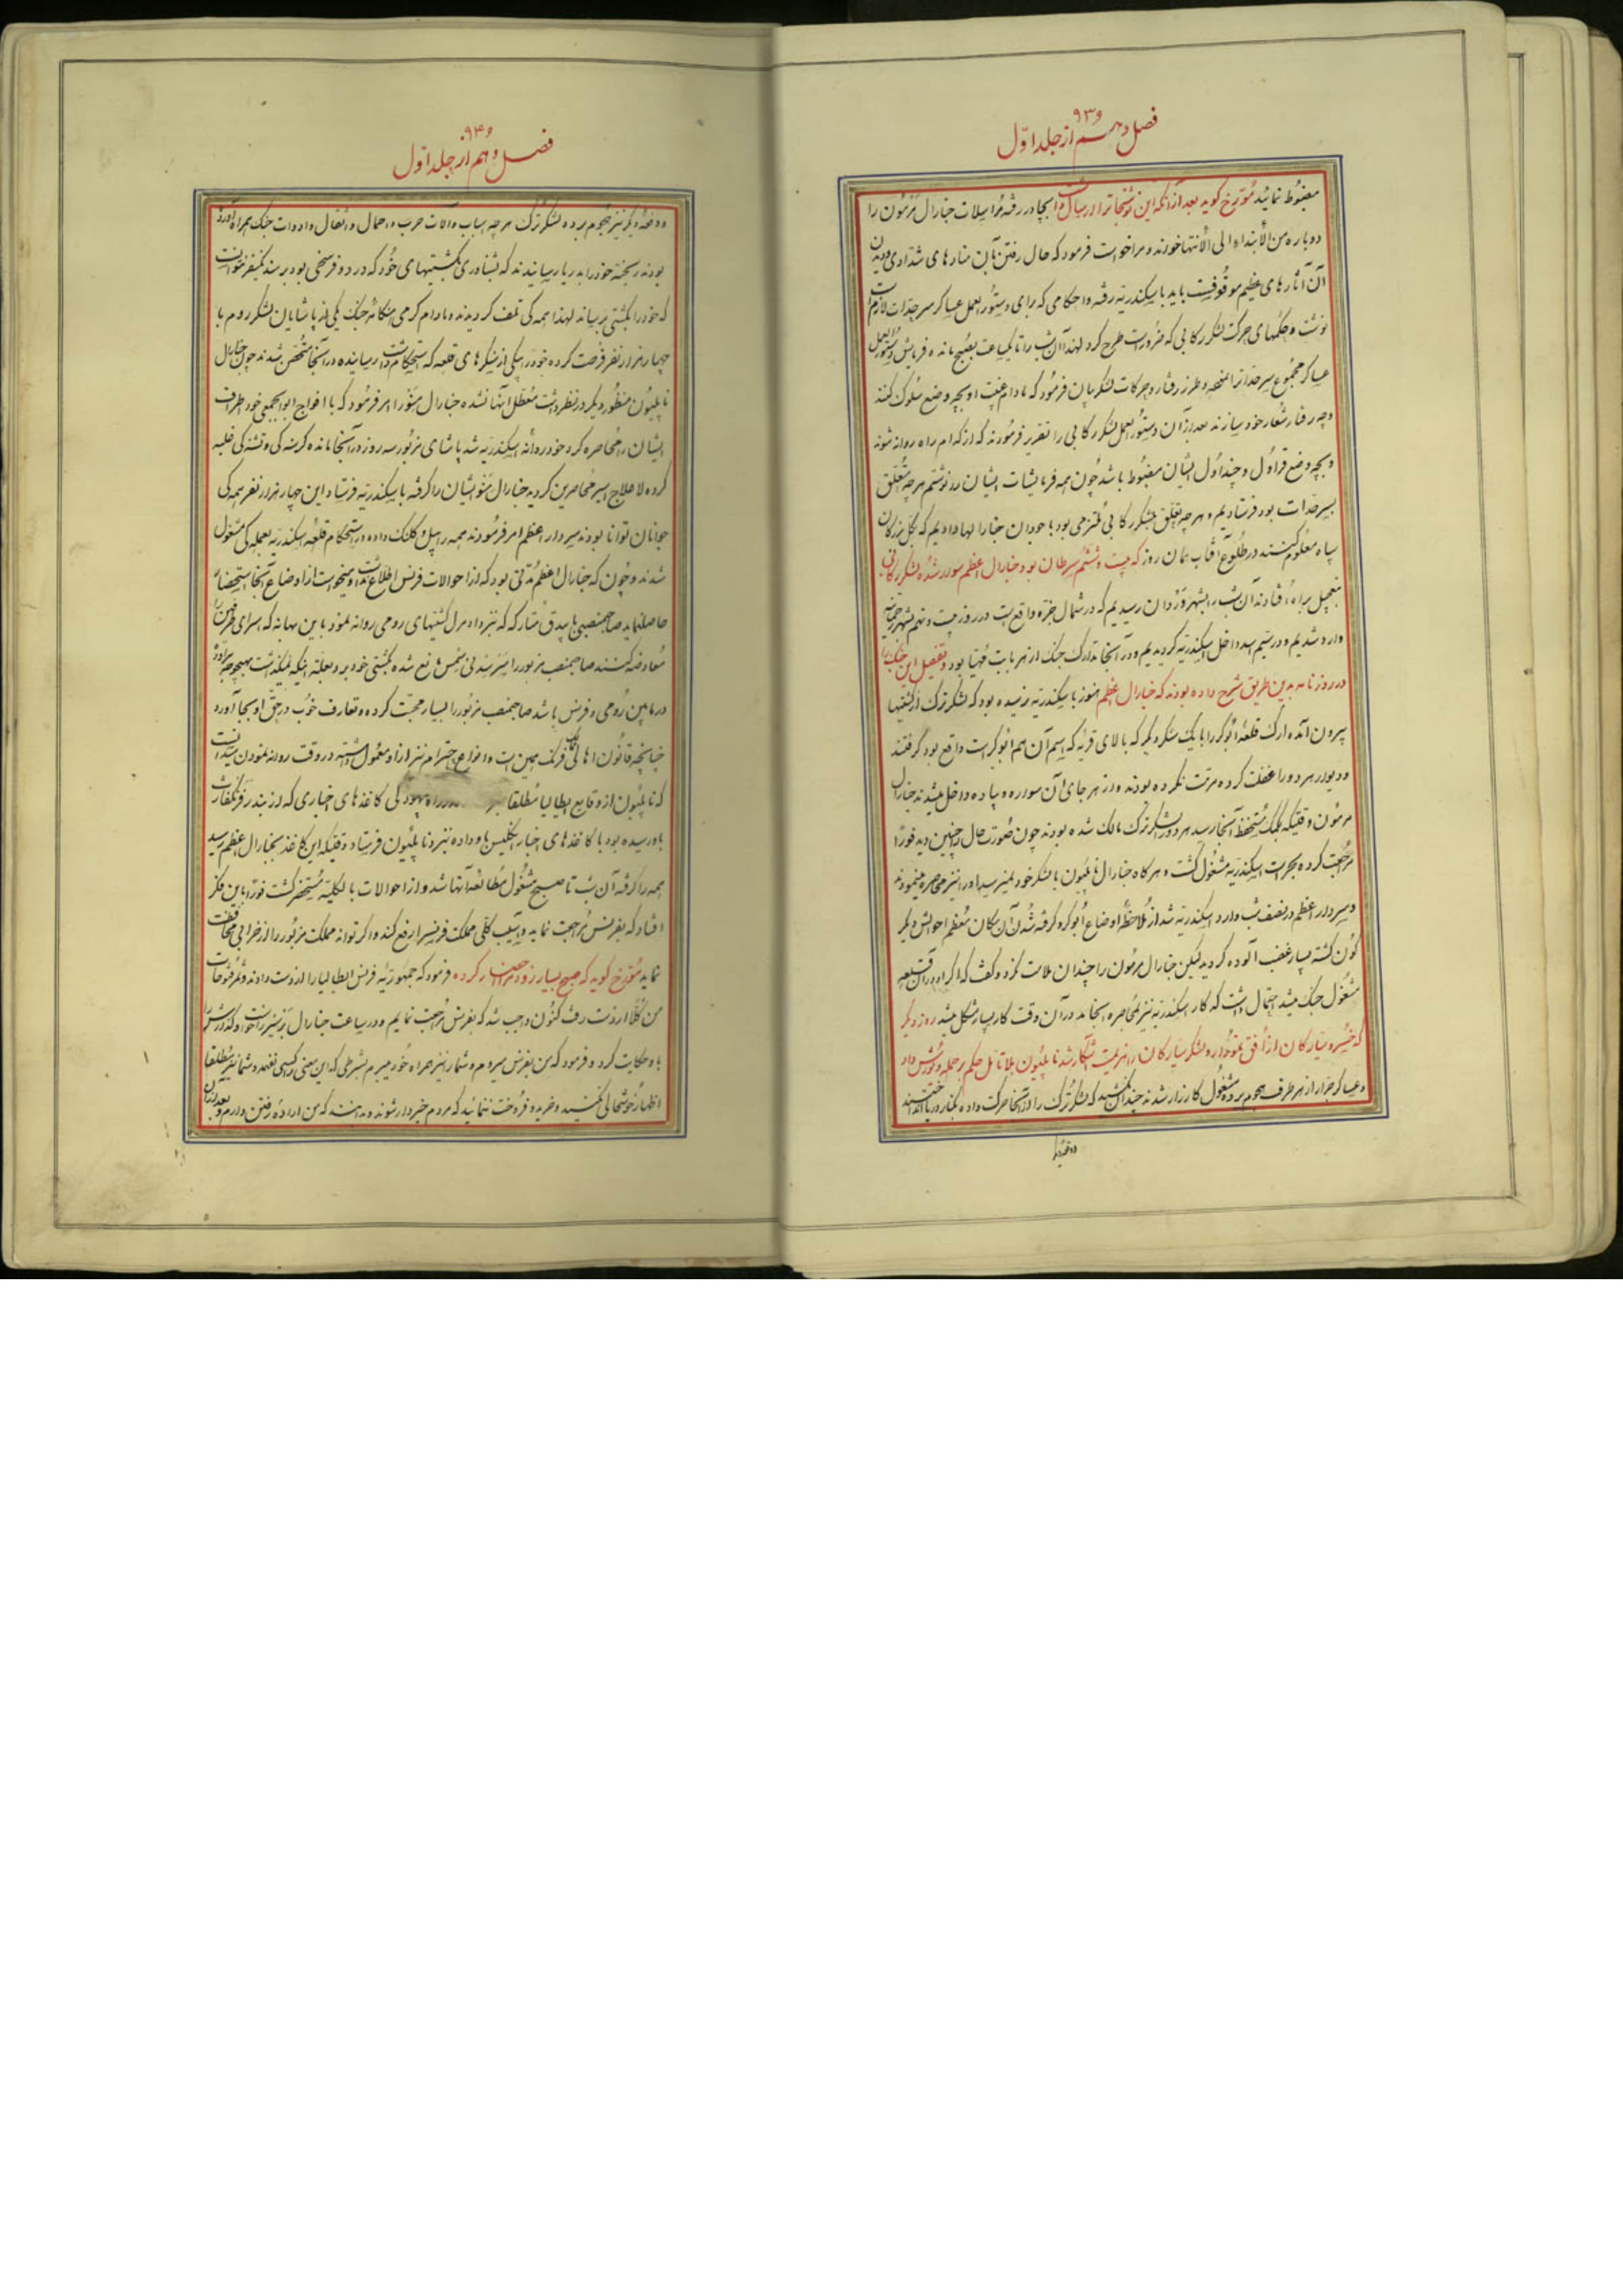 ۹۳۹
فصل دهم از جلد اوّل
مضبوط نمائید مُورّخ کوید بعد از آنکه این نوشتجاترا ارسال داشت بجا در رفته مُراسلات جنارال مَرمُون را
دوباره من الأبتداء الی الأنتها خوندند و مرا خواست فرمود که حال رفتن بآن منارهای شدادی و دیدن
آن آثارهای عظیم موقُوفست باید باسکندریّه رفته و احکامی که برای دستُورالعمل عساکر سرحدّات لازم است
نوشت و حکمهای حرکت لشکر رکابی که ضرُورست طرح کرد لهذا آن شب را تا یکساعت بصُبح مانده فرمایش و دستُورالعمل
عساکر مجموع سرحدّاترا و طرز رفتار و حرکات لشکریان فرمُود که مادام غیبت او بچه وضع سلُوک کنند
و چه رفتار شعار خود سازند بعد از آن دستُورالعمل لشکر رکابی را تقریر فرمُودند که از کدام راه روانه شوند
و بچه وضع قراوُل و چنداوُل ایشان مضبُوط باشد چُون همه فرمایشات ایشان را نوشتم هر چه مُتعلّق
بسرحدّات بود فرستادیم و هر چه تعلّق بلشکر رکابی مُلتزمی بود بخودان جنارالها دادیم که کل بزرکان
سپاه معلُوم کنند در طلُوع آفتاب همان روز که بیست و ششُم سرطان بود جنارال اعظم سوار شده لشکر رکابی
بتعجیل براه اُفتادند آن شب را بشهر وَردان رسیدیم که در شمال جزه واقعست در روز بیست و نهم بشهر رحمانیّه
وارد شدیم و در سیُم اسد داخل اسکندریّه کردیدیم و در آنجا تدارک جنک از هر بابت مُهیّا بود و تفصیل این جنک را
در روزنامه بدین طریق شرح داده بودند که جنارال اعظم هنوز باسکندریّه نرسیده بود که لشکر ترک از کشتیها
بیرون آمده ارک قلعهٔ ابُوکر را با یک سنکر دیکر که بالای قریه که اسم آن هم ابُوکرست واقع بود کرفتند
و دیوار هر دو را غفلت کرده مرمّت نکرده بودند و از هر جای آن سواره و پیاده داخل میشدند جنارال
مرمُون وقتیکه بکمک مُستحفظ آنجا رسید هر دو را لشکر ترک مالک شده بودند چون صُورت حال را چنین دید فوراً
مُراجعت کرده بحراست اسکندریّه مشغُول کشت و هر کاه جنارال ناپلیُون با لشکر خود نمیرسید او را نیز محاصره مینمودند
و سردار اعظم در نصف شب وارد اسکندریّه شد از مُلاحظهٔ اوضاع ابُوکر و کرفته شُدن آن مکان مُعظم احوالش دیکر
کُون کشته بسیار غضب آلوده کردید لیکن جنارال مرمُون را چندان ملامت نکرد و کفت که اکر او در آن قلعه
مشغُول جنک میشد احتمال داشت که کار اسکندریّه نیز بمُحاصره انجامد در آن وقت کار بسیار مشکل میشد روز دیکر
که خسرو سیّارکان از اُفق نموُدار و لشکر سیّارکان را هزیمت آشکار شد ناپلیُون بلا تأمّل حکم بر حمله و یُورش داد
و عساکر جرّار از هر طرف هجوم برده مشغُول کارزار شدند چندان نکشید که لشکر ترک را از آنجا حرکت داده بکنار دریا انداختند
و دفعهٔ دیکر
۹۴۰
فصل دهم از جلد اوّل
و دفعهٔ دیکر نیز هجُوم برده لشکر ترک هر چه اسباب و آلات حرب و احمال و اثقال و ادوات جنک همراه آورده
بودند ریخته خود را بدریا رسانیدند که بشناوری بکشتیهای خُود که در دو فرسخی بود برسند یکنفر نتوانست
که خود را بکشتی برساند لهذا همه کی تلف کردیدند و مادام کرمی هنکامهٔ جنک یکی از پاشایان لشکر روم با
چهار هزار نفر فرصت کرده خود را بیکی از سنکرهای قلعه که استحکام داشت رسانیده در آنجا مُتحصّن شدند چون جنارال
ناپلیُون منظُور دیکر در نظر داشت مُعطّل آنها نشده جنارال مَنو را امر فرمُود که با افواج ابوالجمعی خود اطراف
ایشان را مُحاصره کرد خود روانهٔ اسکندریّه شد پاشای مزبُور سه روز در آنجا مانده کرسنه کی و تشنه کی غلبه
کرده لاعلاج اسیر مُحاصرین کردید جنارال مَنو ایشان را کرفته باسکندریّه فرستاد این چهار هزار نفر همه کی
جوانان توانا بودند سردار اعظم امر فرمُودند همه را بیل و کلنک داده در استحکام قلعهٔ اسکندریّه بعمله کی مشغول
شدند و چُون که جنارال اعظم مُدّتی بود که از احوالات فرنس اطلاع نداشت و میخواست از اوضاع آنجا استحضار
حاصل نماید صاحبمنصبی با بیدق مُتارکه که نزد ادمرال کشتیهای رومی روانه نمُود باین بهانه که اسرای طرفین را
مُعاوضه کنند صاحبمنصب مزبور را سَر سدنی سمس مانع شده بکشتی خود برد بعلّت اینکه نمیکذاشت بهیچوجه مراوده
در مابین رُومی و فرنس باشد صاحبمنصب مزبُور را بسیار محبّت کرده و تعارف خُوب در حقّ او بجا آورد
چنانچه قانُون اهالی فرنک همین است و انواع احترام نیز از او معمُول داشته در وقت روانه نمودن میدانست
که ناپلیُون از وقایع ایطالیا مُطلقا کی کاغذهای اخباری که از بندر فرنکفارت
باو رسیده بود با کاغذهای اخبار انکلیس باو داده نزد ناپلیُون فرستاد وقتیکه این کاغذ بجنارال اعظم رسید
همه را کرفته آن شب تا صبح مشغُول مُطالعهٔ آنها شد و از احوالات بالکلیّه مُستحضر کشت فوراً باین فکر
افتاد که بفرنس مُراجعت نماید و آسیب کلّی مملکت فرنس را رفع کند و اکر تواند مملکت مزبُور را از خرابی محافظت
نماید مُورّخ کوید که صبح بسیار زود مرا احضار کرده فرمود که جمهُوریّهٔ فرنس ایطالیا را از دست دادند و ثمر فتُوحات
من کلّاً از دست رفت کنُون واجب شد که بفرنس مُراجعت نمایم و در ساعت جنارال بَرتیر را خواست و کذارش را
باو حکایت کرد و فرمود که من بفرنس میروم و شما را نیز همراه خُود میبرم بشرطی که این معنی را کسی نفهمد و شما نیز مُطلقا
اظهار خوشحالی نکنید و خرید و فرُوخت ننمائید که مردم خبردار شوند و بدانند که من ارادهٔ رفتن دارم و بعد از آن